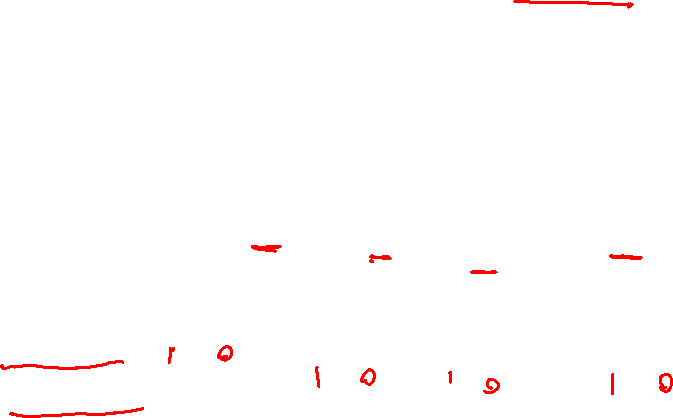 1 0 1 0 1 0 1 0